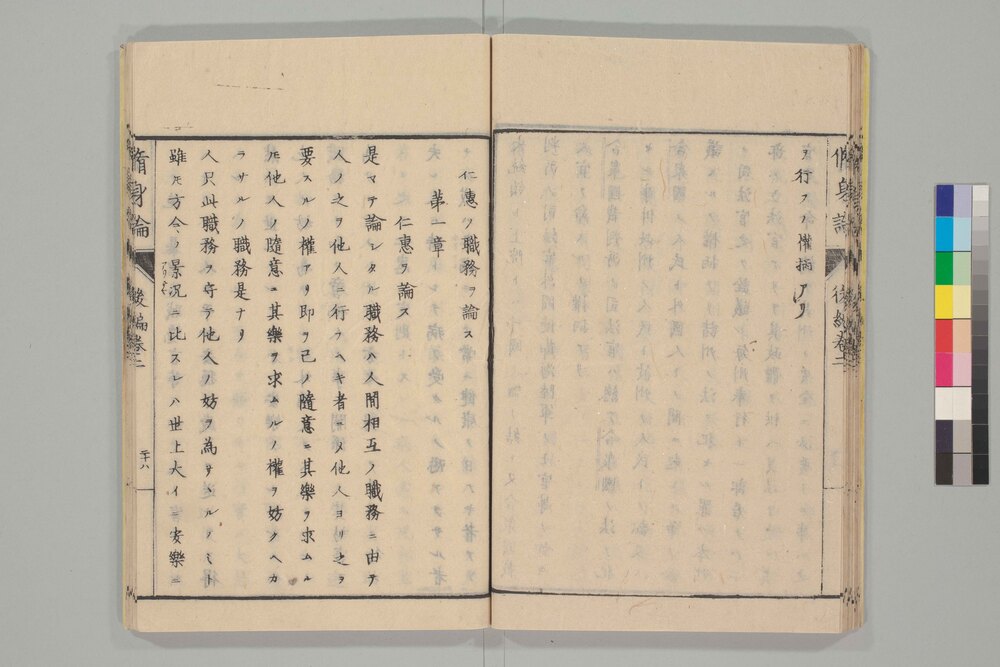 ヲ行フノ權柄アリ
仁惠ノ職務ヲ論ス
第一章
仁惠ヲ論ス
是マテ論シタル職務ハ人間相互ノ職務ニ由テ
人ノ之ヲ他人ニ行フヘキ者ニメ他人ヨリ之ヲ
要スルノ權アリ即ヲ己ノ隨意ニ其樂ヲ求ムル
𪜈他人ノ隨意ニ其樂ヲ求ムルノ權ヲ妨クヘカ
ラサルノ職務是ナリ
人只此職務ヲ守テ他人ノ妨ヲ為サヽルノミト
雖𪜈方今ノ景况ニ比スレハ世上大イニ安樂ニ
脩身論
後編卷二
二十八